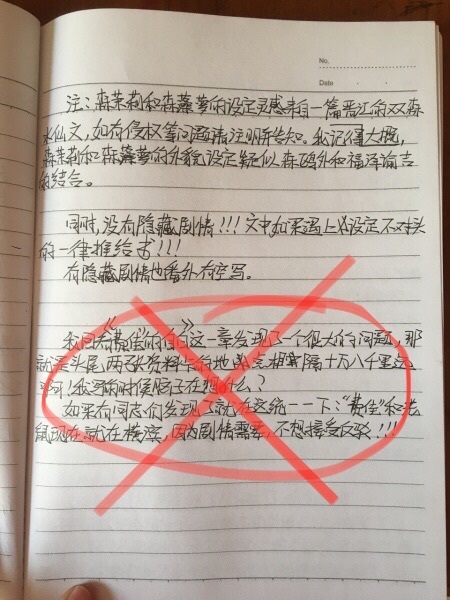 No.
Date
注：森茉莉和森藤萝的设定灵感来自一篇晋江的双森
水仙文，如有侵权等问题请注明并告知。我记得大概，
森茉莉和森藤萝的外貌设定疑似森鸥外和福泽谕吉
的结合。
同时，没有隐藏剧情！！！文中如果遇上必设定不对头
的一律推给书！！！
有隐藏剧情也番外有空写。
我回看《费佳的自白》这一章发现了一个很大的问题，那
就是头尾两张资料
可！我写的时候脑子在想什么？
如果有同志们发现了就在这统一一下："费佳"和老
鼠现在就在横滨，因为剧情需要，不想接受反驳！！！